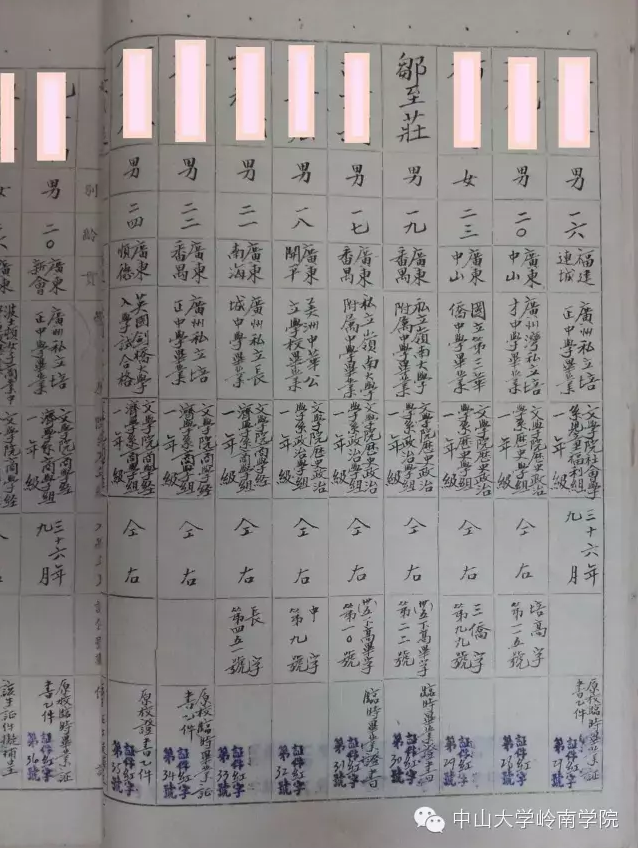 男
一六
福建
連城
廣州私立培
正中學畢業
文學院社會學
系兒童福利組
一年級
三十六年
九月
原校臨時畢業証
書乙件
証件紅字
第27號
男
二〇
廣東
中山
廣州灣私立培
才中學畢業
文學院歷史政治
學系歷史學組
一年級
仝右
培高字
第一五號
証件紅字
女
二三
廣東
中山
國立第三華
僑中學畢業
文學院歷史政治
學系歷史學組
一年級
仝右
三僑字
第九九號
証件紅字
第29號
鄒至莊
男
一九
廣東
番禺
私立嶺南大學
附屬中學畢業
文學院歷史政治
學系政治學組
一年級
仝右
第二二號
臨時畢業證書
証件紅字
第30號
男
一七
廣東
番禺
私立嶺南大學
附屬中學畢業
文學院歷史政治
學系政治學組
一年級
仝右
第一〇號
臨時畢業證書
証件紅字
第31號
男
一八
廣東
開平
美洲中華公
立學校畢業
文學院歷史政治
學系政治學組
一年級
仝右
中字
第九號
証件紅字
第32號
男
二一
廣東
南海
廣州私立長
城中學畢業
文學院商學經
濟學系商學組
一年級
仝右
長字
第四五一號
証件紅字
第33號
男
二二
廣東
番禺
廣州私立培
正中學畢業
文學院商學經
濟學系商學組
一年級
仝右
原校臨時畢業証
書乙件
証件紅字
第34號
男
二四
廣東
順德
英國劍橋大學
入學試合格
文學院商學經
濟學系商學組
一年級
仝右
原校證書乙件
証件紅字
第35號
別
齡
貫
男
二〇
廣東
新會
廣州私立培
正中學畢業
文學院商學經
濟學系商學組
一年級
三十六年
九月
原校臨時畢業証
書乙件
証件紅字
第36號
女
廣東
中山大学岭南学院